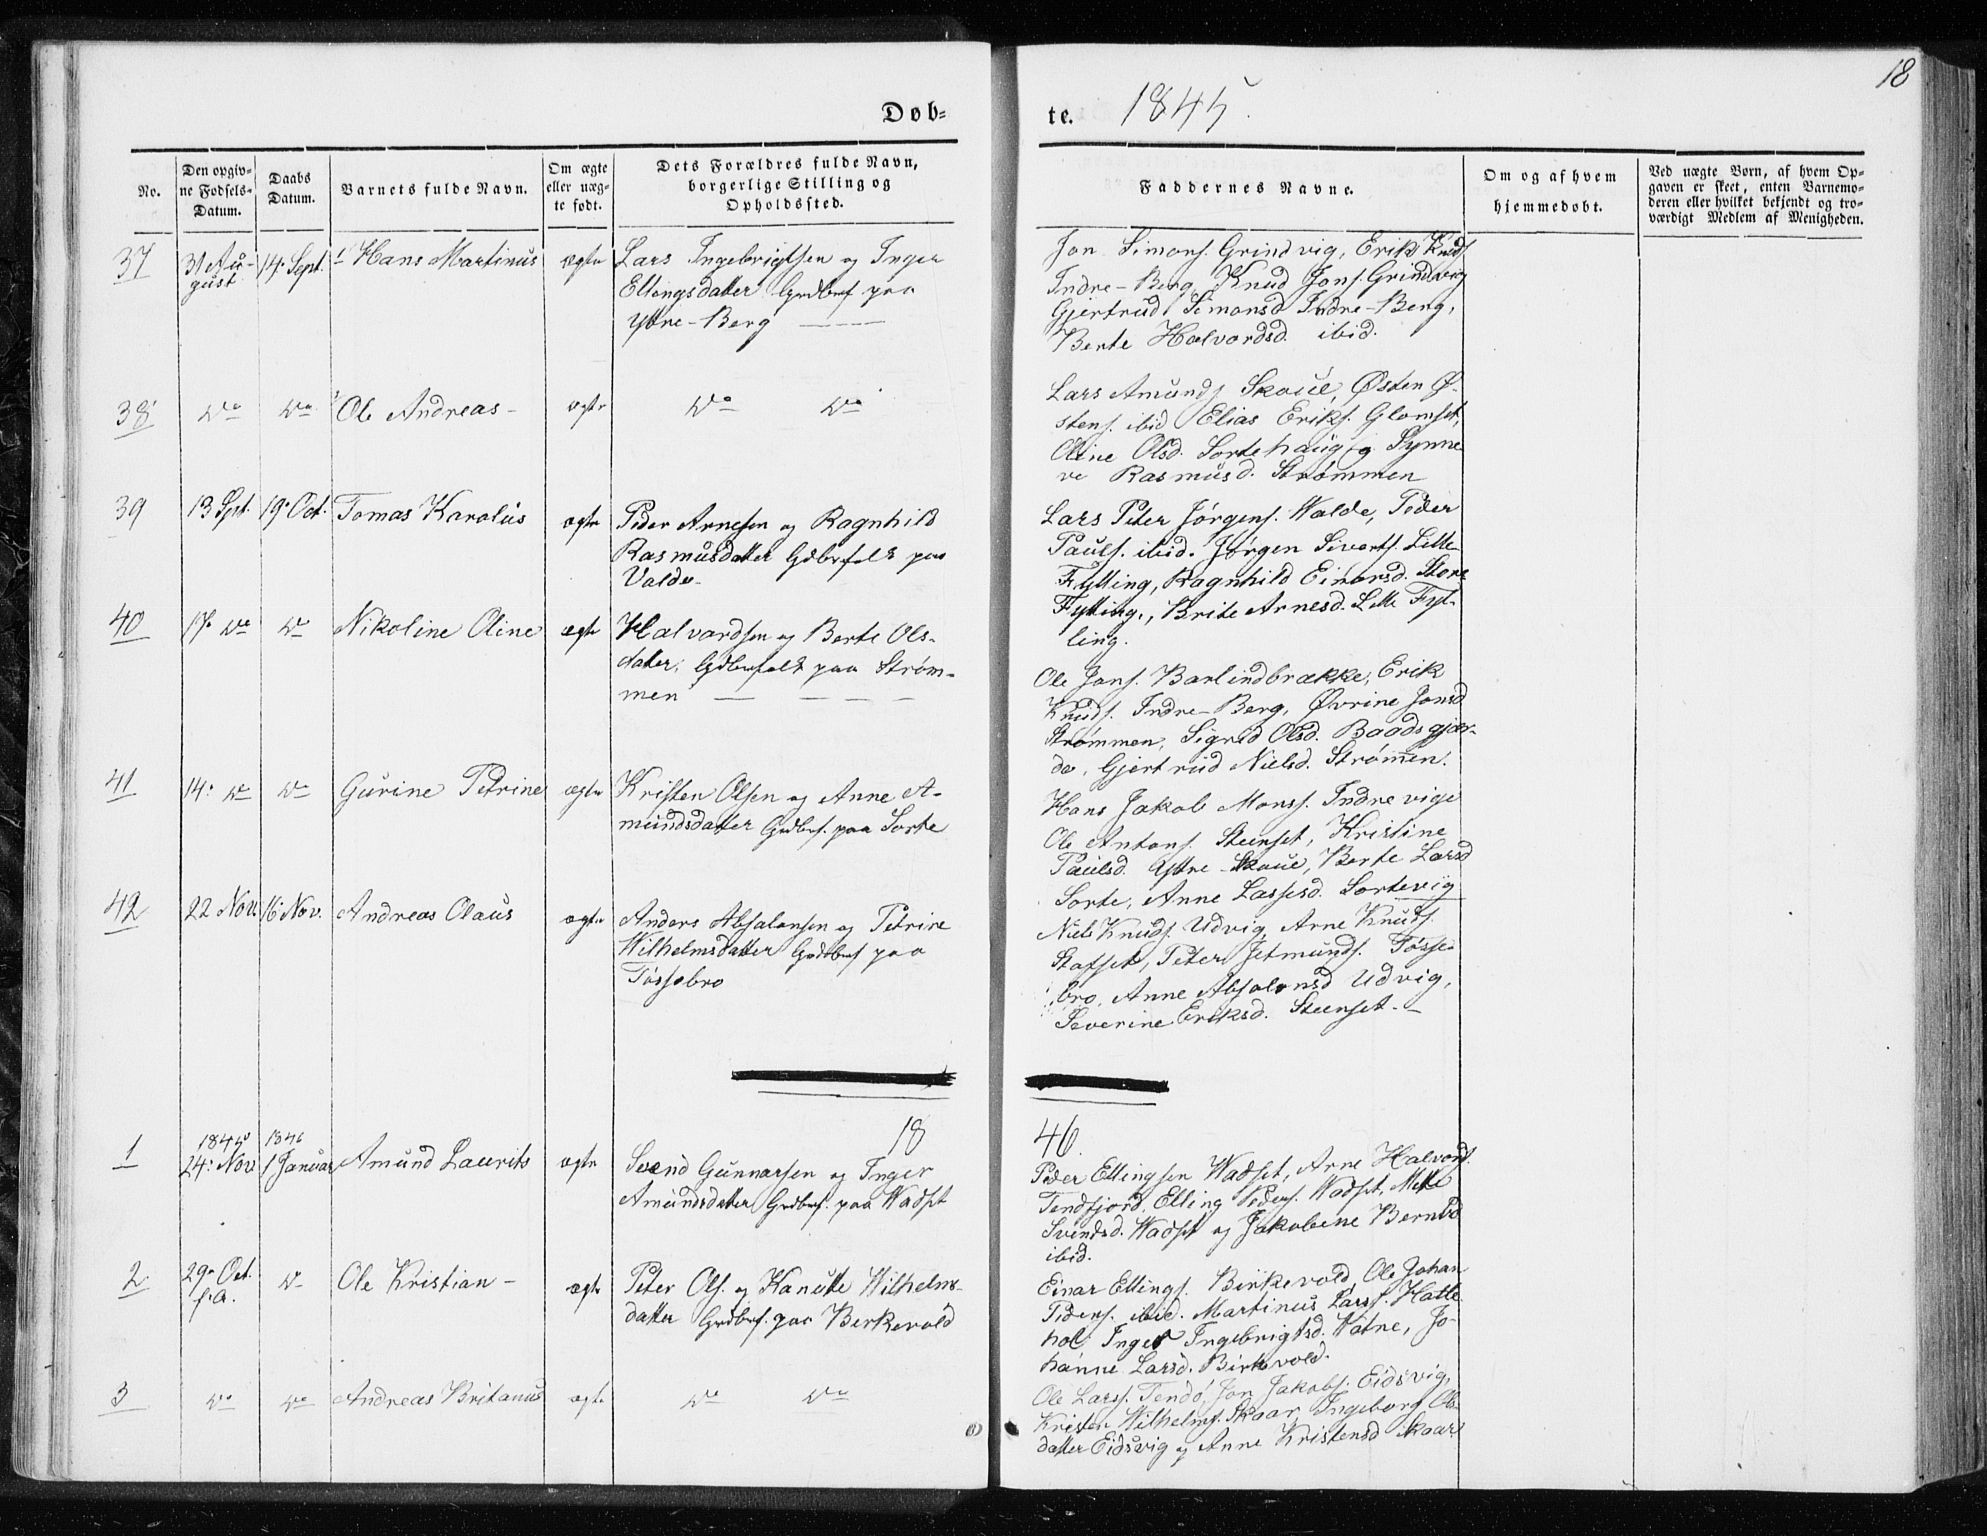 18
Døb-
te. 1845.
No.
Den opgiv-
ne Fødsels-
Datum.
Daabs
Datum.
Barnets fulde Navn.
Om ægte
eller uæg-
te født.
Dets Forældres fulde Navn,
borgerlige Stilling og
Opholdssted.
Faddernes Navne.
Om og af hvem
hjemmedøbt.
Ved uægte Børn, af hvem Op-
gaven er skeet, enten Barnemo-
deren eller hvilket bekjendt og tro-
værdigt Medlem af Menigheden.
37
31 Au-
gust.
14. Sept.
Hans Martinus
ægte
Lars Ingebrigtsen og Inger
Ellingsdatter Grdbrf paa
Ytre-Berg
Jon Simons. Grindvig, Erik Knuds.
Indre-Berg, Knud Jons. Grindvig
Gjertrud Simonsd Indre-Berg,
Berte Halvordsd. ibid.
38
do
do
Ole Andreas -
ægte
do do
Lars Amunds. Skoue, Østen Ø-
stens. ibid Elias Eriks. Glomset,
Oline Olsd. Sortehaug og Synne
ve Rasmusd. Strømmen
39
13 Spt.
19. Oct.
Tomas Karolus
ægte
Peder Arnesen og Ragnhild
Rasmusdatter Gdbrfolk paa
Valde
Lars Peter Jørgens. Walde, Peder
Pauls. ibid. Jørgen Siverts. Lille
Fylling, Ragnhild Einarsd. Store
Fylling, Brite Arnesd. Lille Fyl-
ling.
40
17. do
do
Nikoline Oline
ægte
Halvardsen og Berte Ols-
datter, Gdbrfolk paa Strøm-
men
Ole Jons. Barlindbrække, Erik
Knuds. Indre-Berg, Øvrine Jonsd
Strømmen, Sigrid Olsd. Baadsgjær-
de, Gjertrud Nielsd. Strømen.
41
14. do
do
Gurine Petrine
ægte
Kristen Olsen og Anne A-
mundsdatter Grdbrf. paa Sorte
Hans Jakob Monss. Indrevig
Ole Antons. Steenset, Kristine
Paulsd. Ytre-Skoue, Berte Larsd
Sorte, Anne Lassesd. Sortevig
42
22 Nov.
16 Nov.
Andreas Olaus
ægte
Anders Absalonsen og Petrine
Wilhelmsdatter Grdbrf paa
Tøssebro
Niels Knuds. Udvig, Arne Knuds.
Stafset, Peter Jetmunds. Tøsse-
bro, Anne Absalonsd Udvig,
Severine Eriksd. Steenset. -
18
46.
1
1845
24. Nov
1846
1 Januar
Amund Laurits
ægte
Svend Gunnarsen og Inger
Amundsdatter Grdbrf. paa Wadset
Peder Ellingsen Wadset, Arne Halvords.
Tendfjord, Elling Peders. Wadset, Mette
Svendsd. Wadset og Jakobine Berntsd
ibid.
2
29. Oct.
f.A.
do
Ole Kristian -
ægte
Peter Ols. og Hanutte Wilhelms-
datter Grdbrf. paa Berkevold
Einar Ellings. Birkevold, Ole Johan
Peders. ibid. Martinus Larss. Hatle
hol Inger Ingebrigtsd. Vatne, Jo-
hanne Larsd. Birkevold.
3
do
do
Andreas Britanus
ægte
do do
Ole Larss. Tendø, Jon Jakobs. Eidsvig,
Kristen Wilhelms. Skaar, Ingeborg Ols-
datter Eidsvig og Anne Kristensd Skaar